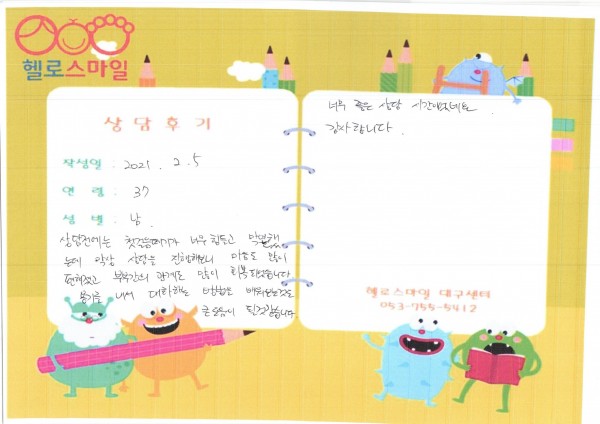 헬로스마일
상담후기
작성일 : 2021. 2. 5
연 령 : 37
성 별 : 남.
상담전에는 첫걸음떼기가 너무 힘들고 막연했
는데 막상 상담을 진행해보니 마음도 많이
편해졌고 부부간의 관계도 많이 회복되었습니다
용기를 내서 대화하는 방법을 배워보는것도
큰 도움이 된것같습니다
너무 좋은 상담 시간이었어요.
감사합니다.
헬로스마일 대구센터
053-755-5412